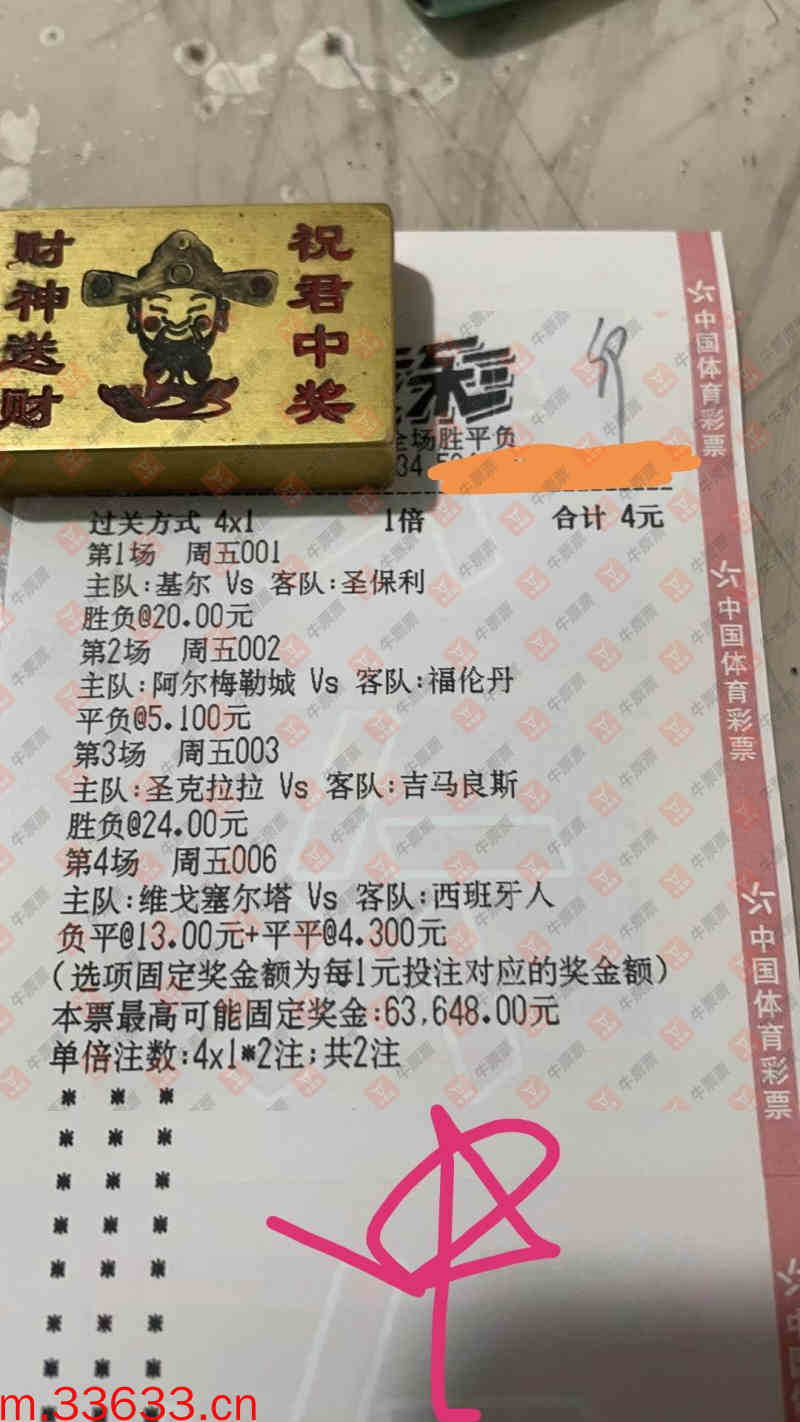 财神送财
祝君中奖
全场胜平负
过关方式 4x1 1倍 合计 4元
第1场 周五001
主队:基尔 Vs 客队:圣保利
胜负@20.00元
第2场 周五002
主队:阿尔梅勒城 Vs 客队:福伦丹
平负@5.100元
第3场 周五003
主队:圣克拉拉 Vs 客队:吉马良斯
胜负@24.00元
第4场 周五006
主队:维戈塞尔塔 Vs 客队:西班牙人
负平@13.00元+平平@4.300元
(选项固定奖金额为每1元投注对应的奖金额)
本票最高可能固定奖金:63,648.00元
单倍注数:4x1*2注;共2注
中国体育彩票
中国体育彩票
中国体育彩票
m.33633.cn